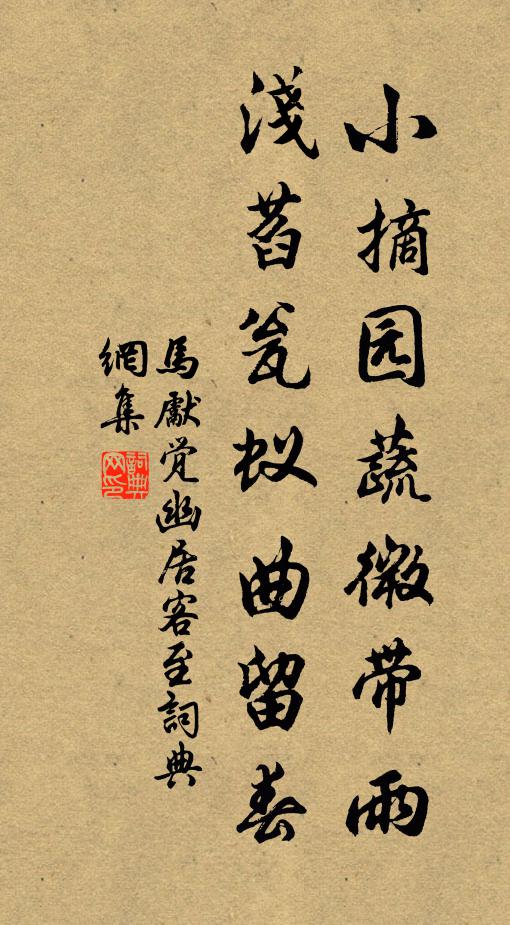 小摘园蔬微带雨
淺瓮蚁曲留春
馬獻觉幽居客至詞典
網集
詞典
网印